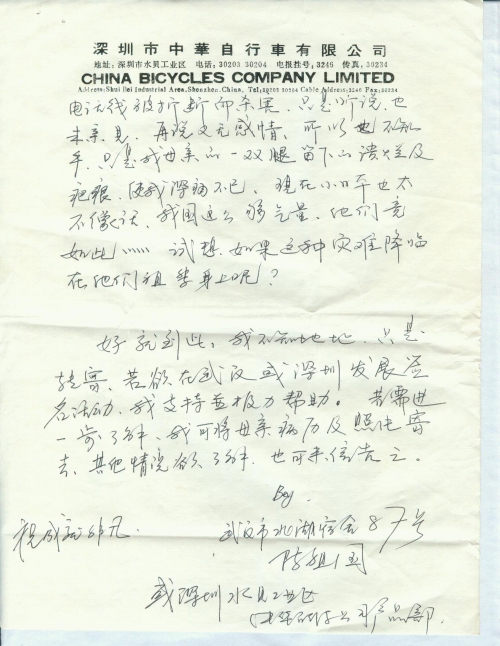 深圳市中華自行車有限公司
地址：深圳市水贝工业区 电话：30203 30204 电报挂号：3246 传真：30234
CHINA BICYCLES COMPANY LIMITED
Address:Shui Bei Industrial Area,Shenzhen,China. Tel:30203 30204 Cable Address:3246 Fax:30234
电话线被打断而杀害，只是听说，也
未亲见，再说又无感情，可以也不知
。只是我母亲的一双腿留下的溃烂及
疤痕，使我深痛不已，现在小日本也太
不像话，我国这么够气量，他们竟
如此……试想如果这种灾难降临
在他们祖辈身上呢？
好就到此，我不知地址，只是
转寄，若欲在武汉或深圳发展签
名活动，我支持并极力帮助。若需进
一步了解，我可将母亲病历及照片寄
去，其他情况欲了解，也可来信告之。
祝成就非凡
武汉市北湖宿舍87号
陈祖国
或深圳水贝工业区
公司产品部